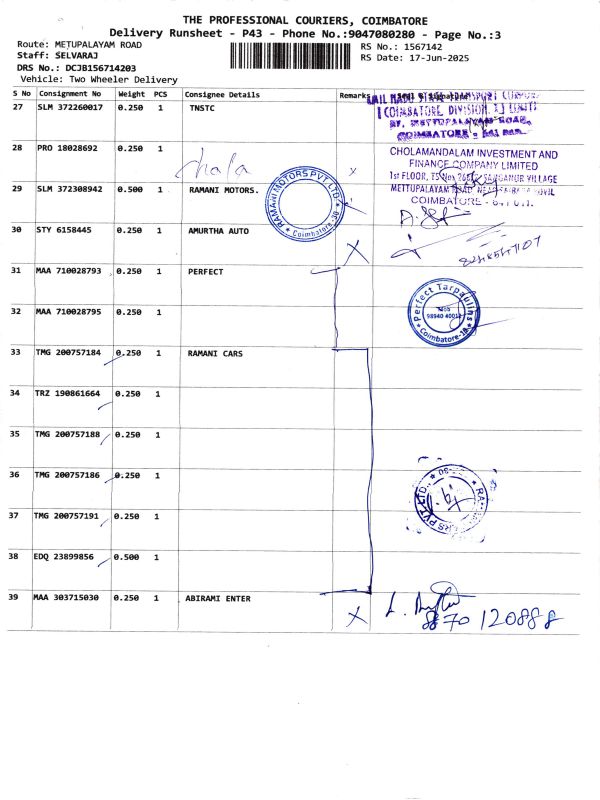 THE PROFESSIONAL COURIERS, COIMBATORE
Delivery Runsheet - P43 - Phone No.:9047080280 - Page No.:3
Route: METUPALAYAM ROAD
Staff: SELVARAJ
DRS No.: DCJB156714203
Vehicle: Two Wheeler Delivery
RS No.: 1567142
RS Date: 17-Jun-2025
S No Consignment No Weight PCS Consignee Details Remarks
27 SLM 372260017 0.250 1 TNSTC
COIMBATORE DIVISION
28 PRO 18028692 0.250 1
chola
CHOLAMANDALAM INVESTMENT AND
FINANCE COMPANY LIMITED
1st FLOOR, VILLAGE
METTUPALAYAM ROAD
COIMBATORE
29 SLM 372308942 0.500 1 RAMANI MOTORS.
RAMANI MOTORS PVT LTD
Coimbatore
30 STY 6158445 0.250 1 AMURTHA AUTO
31 MAA 710028793 0.250 1 PERFECT
Perfect Tarpaulins
Coimbatore
32 MAA 710028795 0.250 1
33 TMG 200757184 0.250 1 RAMANI CARS
34 TRZ 190861664 0.250 1
35 TMG 200757188 0.250 1
36 TMG 200757186 0.250 1
37 TMG 200757191 0.250 1
38 EDQ 23899856 0.500 1
39 MAA 303715030 0.250 1 ABIRAMI ENTER
8870120888